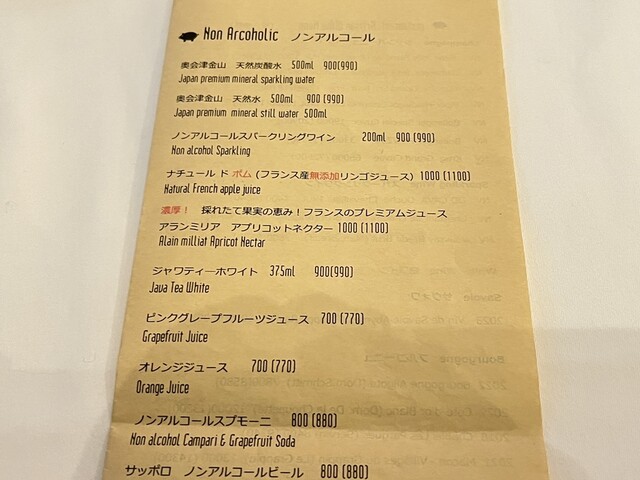 Non Arcoholic ノンアルコール
奥会津金山 天然炭酸水 500ml 900(990)
Japan premium mineral sparkling water
奥会津金山 天然水 500ml 900 (990)
Japan premium mineral still water 500ml
ノンアルコールスパークリングワイン 200ml 900 (990)
Non alcohol Sparkling
ナチュール ド ポム (フランス産無添加リンゴジュース) 1000 (1100)
Natural French apple juice
濃厚! 採れたて果実の恵み!フランスのプレミアムジュース
アランミリア アプリコットネクター 1000 (1100)
Alain milliat Apricot Nectar
ジャワティーホワイト 375ml 900(990)
Java Tea White
ピンクグレープフルーツジュース 700 (770)
Grapefruit Juice
オレンジジュース 700 (770)
Orange Juice
ノンアルコールスプモーニ 800 (880)
Non alcohol Campari & Grapefruit Soda
サッポロ ノンアルコールビール 800 (880)